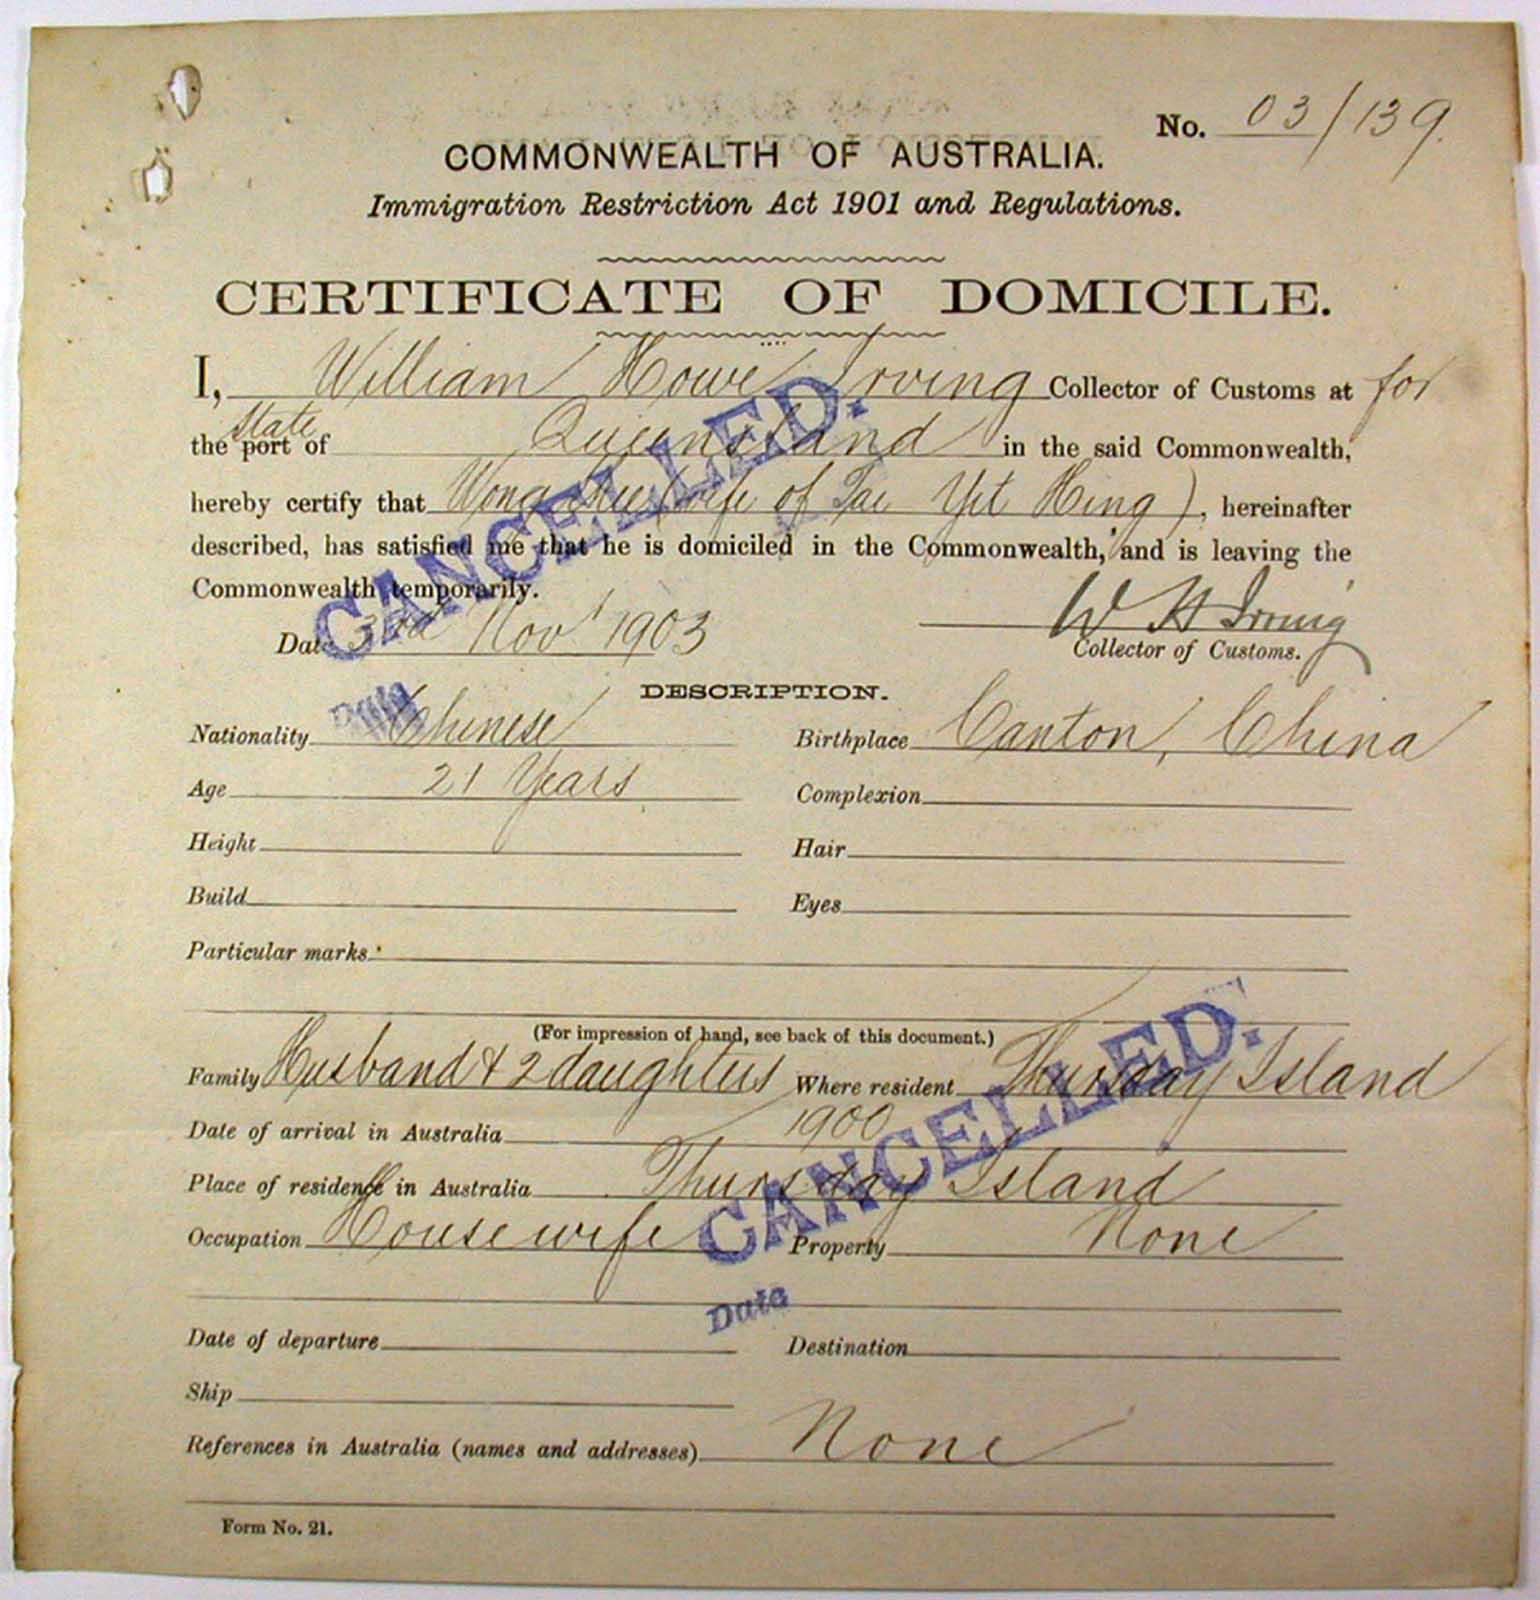 No. 03/139.
COMMONWEALTH OF AUSTRALIA.
Immigration Restriction Act 1901 and Regulations.
CERTIFICATE OF DOMICILE.
I, William Howe Irving Collector of Customs at for
State
the port of Queensland in the said Commonwealth,
hereby certify that Wong (wife of Tai Yit Hing), hereinafter
described, has satisfied me that he is domiciled in the Commonwealth, and is leaving the
Commonwealth temporarily.
CANCELLED.
Date 3rd Nov 1903
W H Irving
Collector of Customs.
Date
DESCRIPTION.
Nationality Chinese Birthplace Canton, China
Age 21 Years Complexion
Height Hair
Build Eyes
Particular marks
(For impression of hand, see back of this document.)
Family Husband & 2 daughters Where resident Thursday Island
Date of arrival in Australia 1900
CANCELLED.
Place of residence in Australia Thursday Island
Occupation Housewife Property None
Date
Date of departure Destination
Ship
References in Australia (names and addresses) None
Form No. 21.